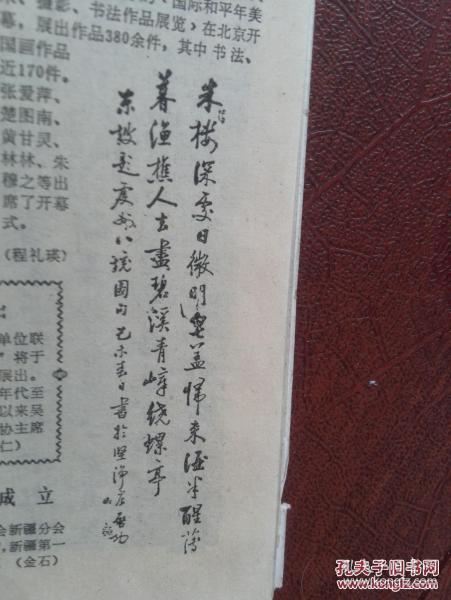 国际和平年美
摄影、书法作品展览》在北京开
幕，展出作品380余件，其中书法、
国画作品
近170件。
张爱萍、
楚图南、
黄甘灵、
林林、朱
穆之等出
席了开幕
式。
（程礼瑛）
朱楼深處日微明皂盖歸来酒半醒薄
暮渔樵人去盡碧溪青嶂绕螺亭
东坡题虔州八境圖句己未春日書於堅浄居启功
单位联
将于
展出。
年代至
以来吴
协主席
仁）
成立
会新疆分会
，新疆第一
（金石）
孔夫子旧书网